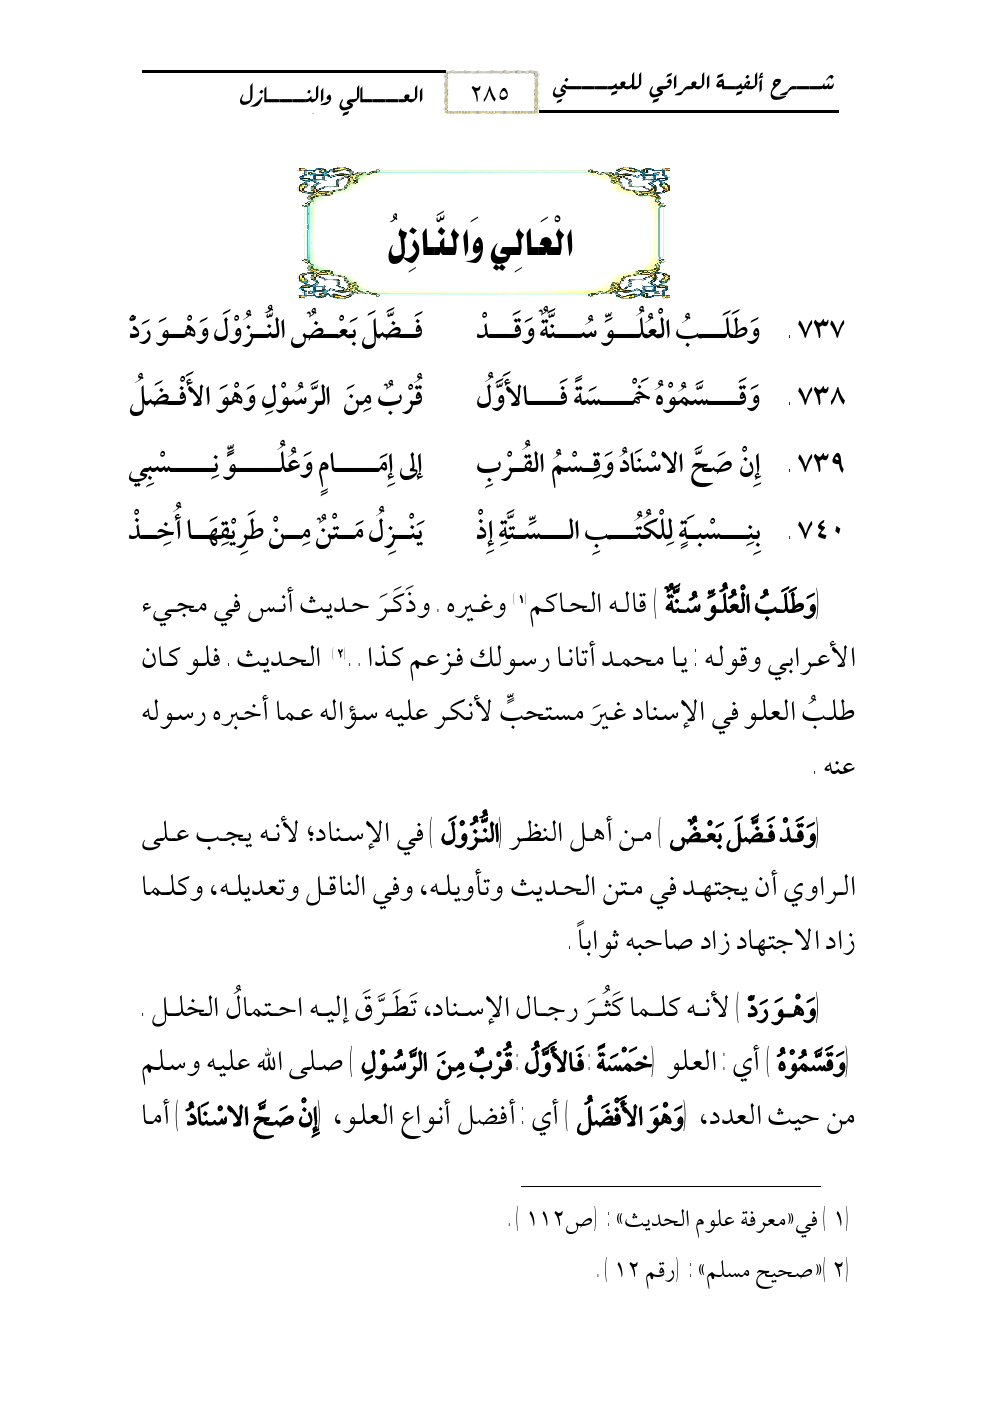 شرح ألفية العراقي للعيني ٢٨٥ العالي والنازل
الْعَالِي وَالنَّازِلُ
٧٣٧. وَطَلَبُ الْعُلُوِّ سُنَّةٌ وَقَدْ فَضَّلَ بَعْضٌ النُّزُوْلَ وَهْوَ رَدّْ
٧٣٨. وَقَسَّمُوْهُ خَمْسَةً فَالأَوَّلُ قُرْبٌ مِنَ الرَّسُوْلِ وَهْوَ الأَفْضَلُ
٧٣٩. إِنْ صَحَّ الاسْنَادُ وَقِسْمُ القُرْبِ إلى إِمَامٍ وَعُلُوٍّ نِسْبِي
٧٤٠. بِنِسْبَةٍ لِلْكُتُبِ السِّتَّةِ إِذْ يَنْزِلُ مَتْنٌ مِنْ طَرِيْقِهَا أُخِذْ
(وَطَلَبُ الْعُلُوِّ سُنَّةٌ) قاله الحاكم(١) وغيره. وذَكَرَ حديث أنس في مجيء
الأعرابي وقوله: يا محمد أتانا رسولك فزعم كذا..(٢) الحديث. فلو كان
طلبُ العلو في الإسناد غيرَ مستحبٍّ لأنكر عليه سؤاله عما أخبره رسوله
عنه.
(وَقَدْ فَضَّلَ بَعْضٌ) من أهل النظر (النُّزُوْلَ) في الإسناد؛ لأنه يجب على
الراوي أن يجتهد في متن الحديث وتأويله، وفي الناقل وتعديله، وكلما
زاد الاجتهاد زاد صاحبه ثواباً.
(وَهْوَ رَدّْ) لأنه كلما كَثُرَ رجال الإسناد، تَطَرَّقَ إليه احتمالُ الخلل.
(وَقَسَّمُوْهُ) أي: العلو (خَمْسَةً: فَالأَوَّلُ: قُرْبٌ مِنَ الرَّسُوْلِ) صلى الله عليه وسلم
من حيث العدد، (وَهْوَ الأَفْضَلُ) أي: أفضل أنواع العلو، (إِنْ صَحَّ الاسْنَادُ) أما
(١) في «معرفة علوم الحديث»: (ص١١٢).
(٢) «صحيح مسلم»: (رقم ١٢).